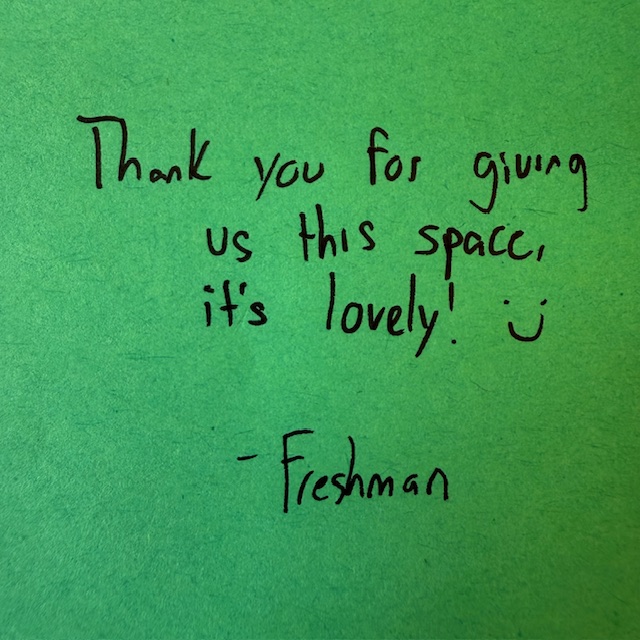 Thank you for giving
us this space,
it's lovely! :)
- Freshman